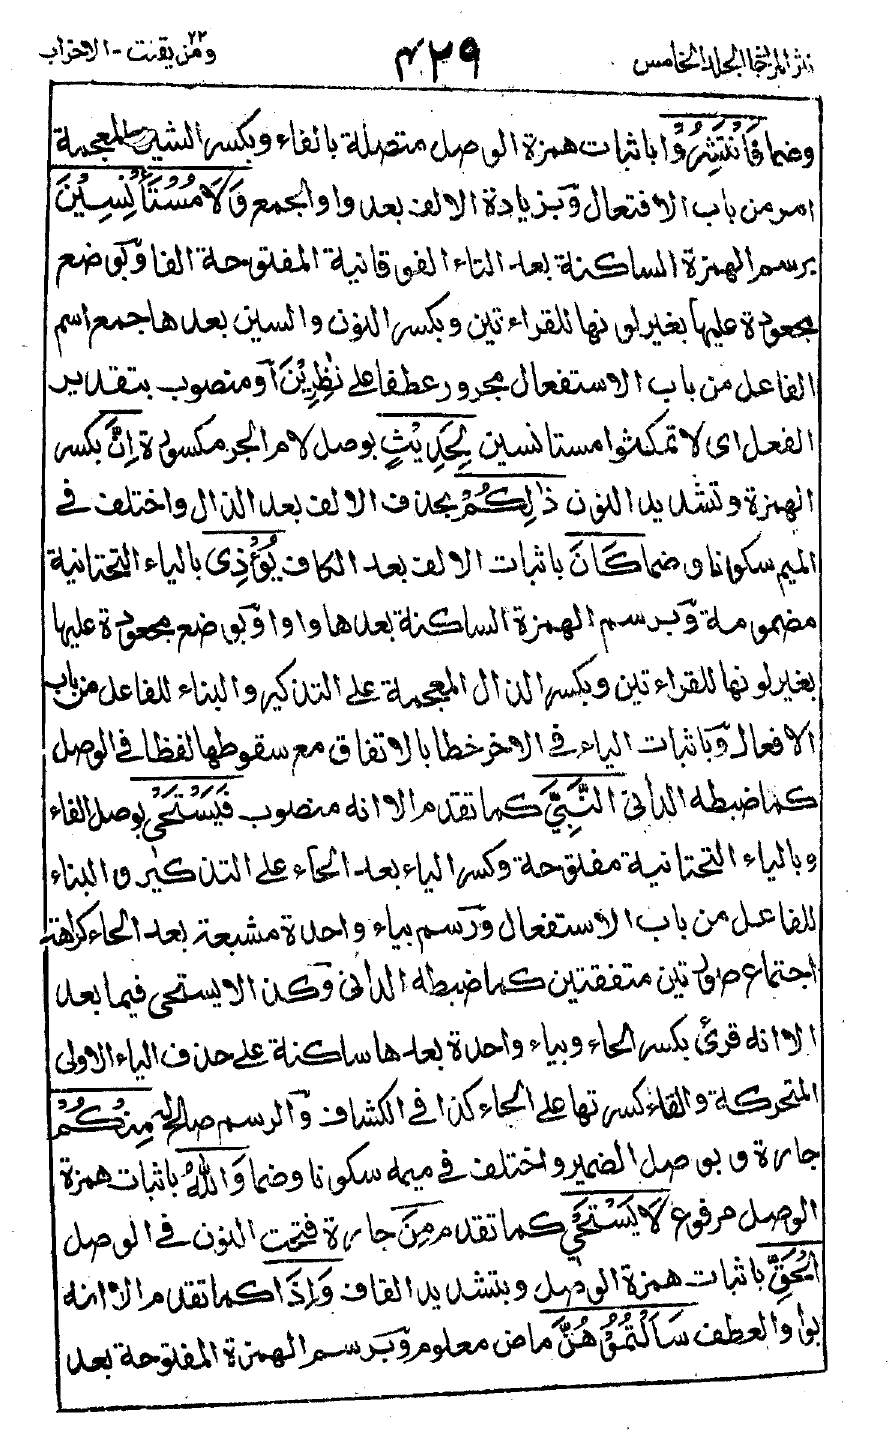 نثر المرجان المجلد الخامس
٤٢٩
ومن يقنت ٢٢ - الاحزاب
وضما فَانْتَشِرُوْا باثبات همزة الوصل متصلة بالفاء وبكسر الشين المعجمة
امر من باب الافتعال وبزيادة الالف بعد واو الجمع وَلَا مُسْتَأْنِسِيْنَ
برسم الهمزة الساكنة بعد التاء الفوقانية المفتوحة الفا وبوضع
مجعودة عليها بغير لونها للقراءتين وبكسر النون والسين بعدها جمع اسم
الفاعل من باب الاستفعال مجرور عطفا على نٰظِرِيْنَ او منصوب بتقدير
الفعل اى لا تمكثوا مستانسين لِحَدِيْثٍ بوصل لام الجر مكسورة اِنَّ بكسر
الهمزة وتشديد النون ذٰلِكُمْ بحذف الالف بعد الذال واختلف فى
الميم سكونا وضما كَانَ باثبات الالف بعد الكاف يُؤْذِى بالياء التحتانية
مضمومة وبرسم الهمزة الساكنة بعدها واوا وبوضع مجعودة عليها
بغير لونها للقراءتين وبكسر الذال المعجمة على التذكير والبناء للفاعل من باب
الافعال وباثبات الياء فى الاخر خطا بالاتفاق مع سقوطها لفظا فى الوصل
كما ضبطه الدانى النَّبِيَّ كما تقدم الا انه منصوب فَيَسْتَحْىٖ بوصل الفاء
وبالياء التحتانية مفتوحة وكسر الياء بعد الحاء على التذكير والبناء
للفاعل من باب الاستفعال ورسم بياء واحدة مشبعة بعد الحاء كراهة
اجتماع صورتين متفقتين كما ضبطه الدانى وكذا لا يستحى فيما بعد
الا انه قرئ بكسر الحاء وبياء واحدة بعدها ساكنة على حذف الياء الاولى
المتحركة والقاء كسرتها على الحاء كذا فى الكشاف والرسم صالح له مِنْكُمْ
جارة وبوصل الضمير واختلف فى ميمه سكونا وضما وَاللهُ باثبات همزة
الوصل مرفوع لَا يَسْتَحْىٖ كما تقدم مِنَ جارة فتحت النون فى الوصل
الْحَقِّ باثبات همزة الوصل وبتشديد القاف وَاِذَا كما تقدم الا انه
بواو العطف سَاَلْتُمُوْهُنَّ ماض معلوم وبرسم الهمزة المفتوحة بعد